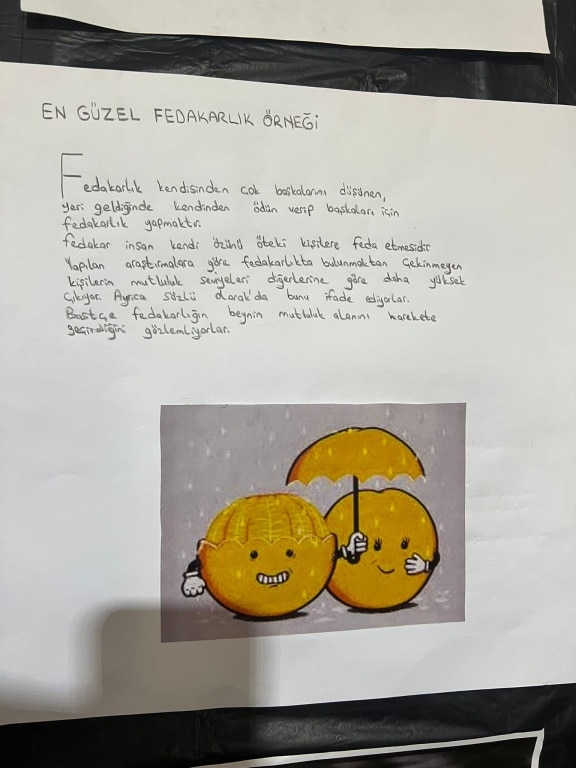 EN GÜZEL FEDAKARLIK ÖRNEĞİ
Fedakarlık kendisinden çok başkalarını düşünen,
yeri geldiğinde kendinden ödün verip başkaları için
fedakarlık yapmaktır.
fedakar insan kendi özünü öteki kişilere feda etmesidir
Yapılan araştırmalara göre fedakarlıkta bulunmaktan çekinmeyen
kişilerin mutluluk seviyeleri diğerlerine göre daha yüksek
çıkıyor. Ayrıca sözlü olarak'da bunu ifade ediyorlar.
fedakarlığın beynin mutluluk alanını harekete
geçirdiğini gözlemliyorlar.